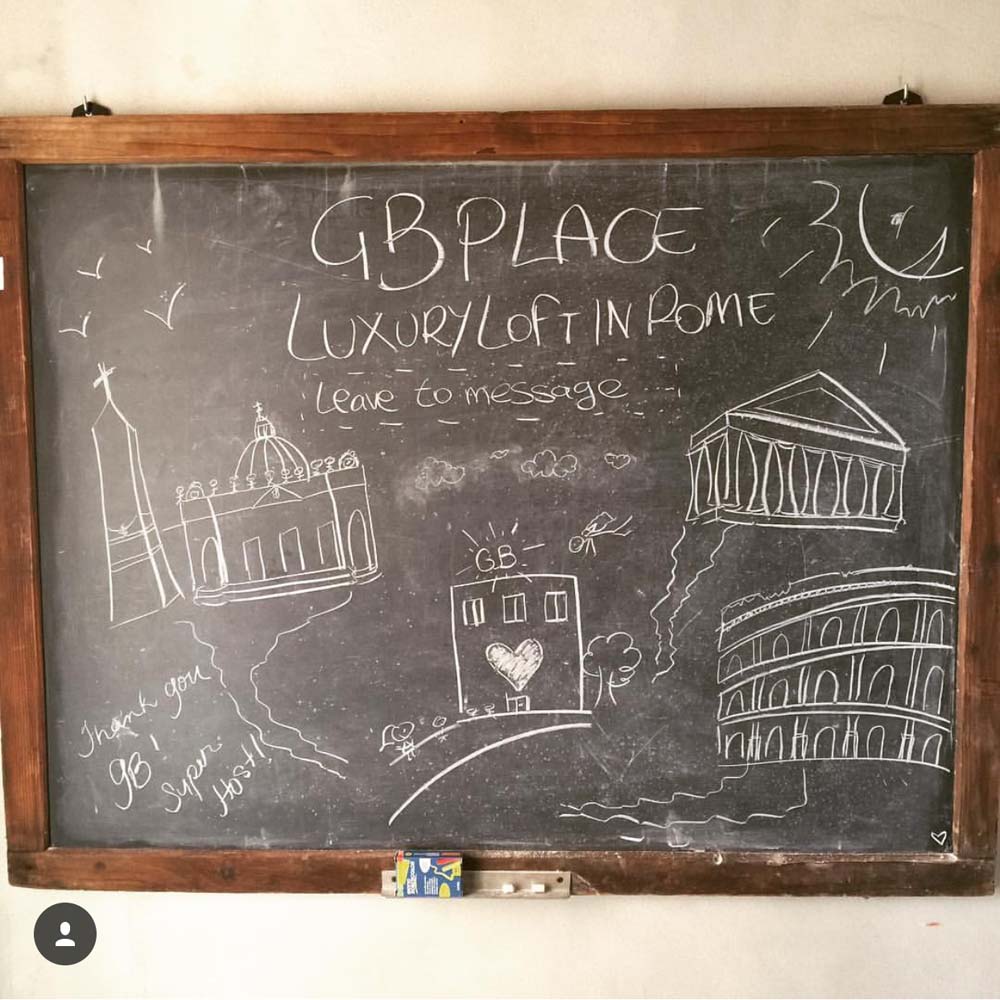 GB PLACE
LUXURY LOFT IN ROME
Leave to message
GB
Thank you
GB!
Super
Host!!